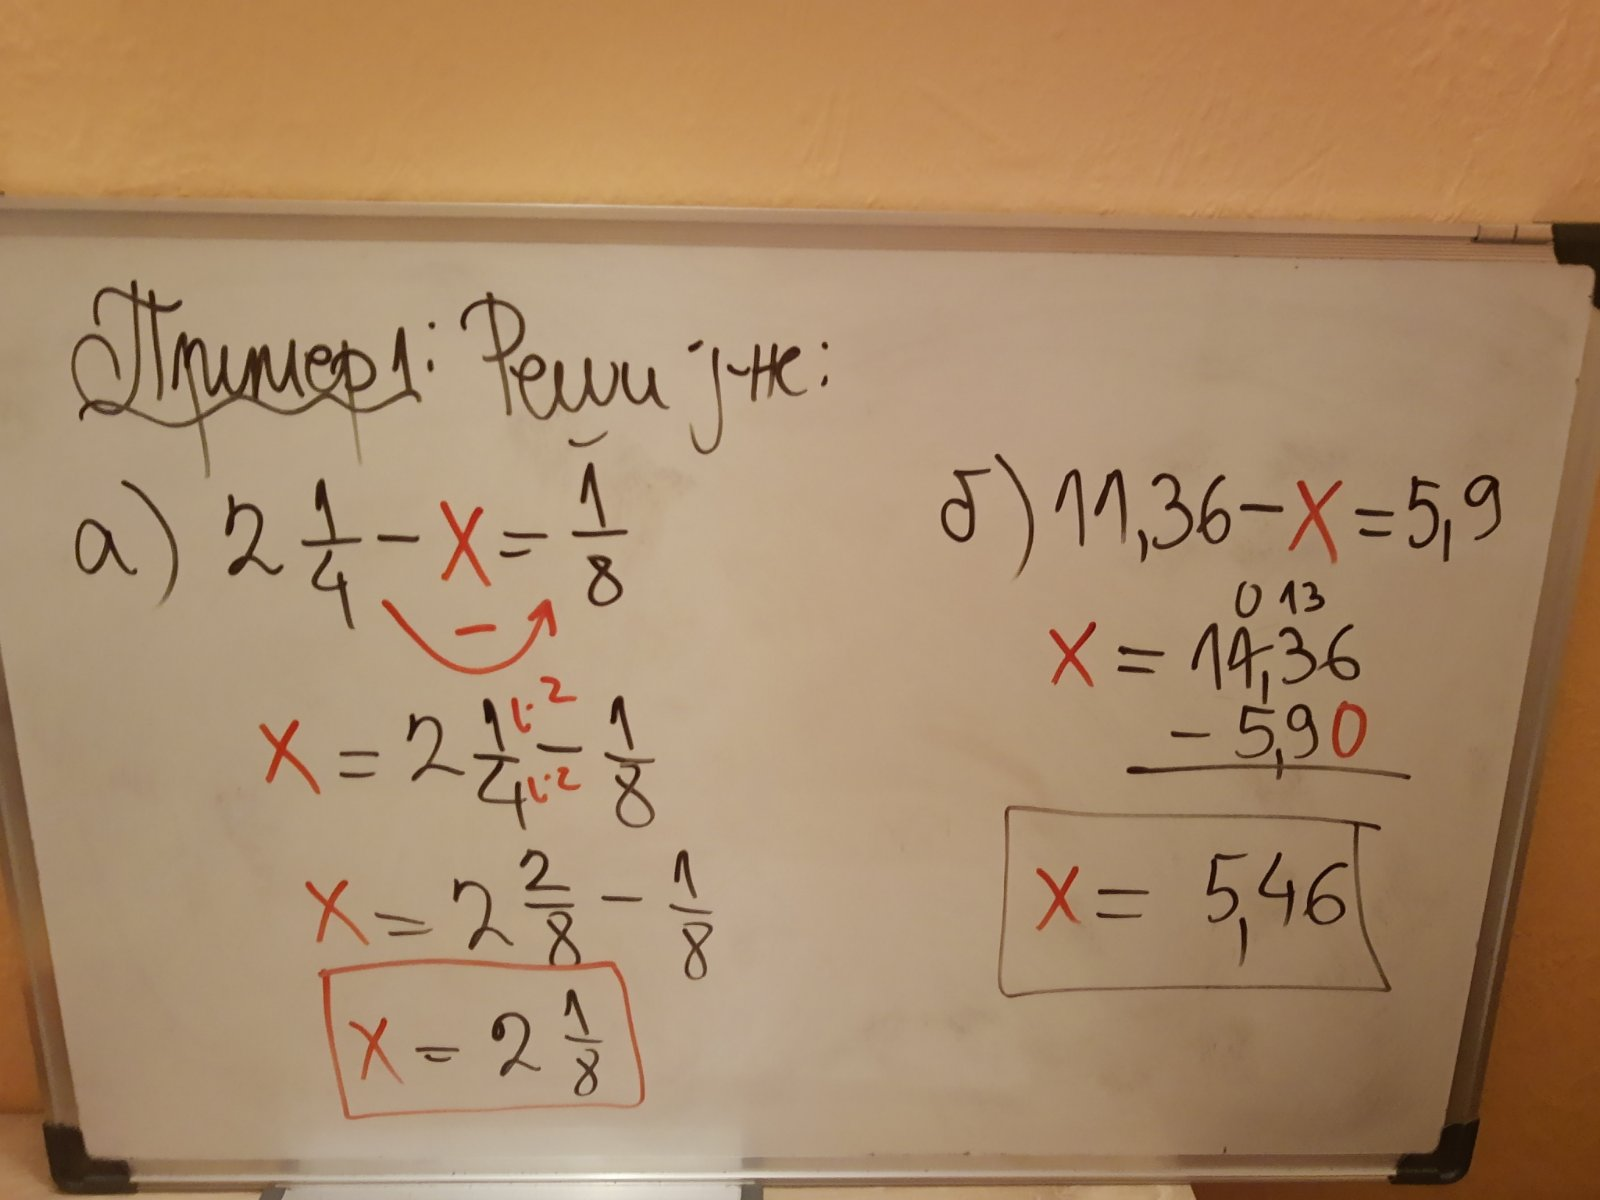 Пример 1: Реши ј-не:
а) 2 1/4 - x = 1/8
-
x = 2 1/4 - 1/8
(·2
(·2
x = 2 2/8 - 1/8
x = 2 1/8
б) 11,36 - x = 5,9
0 13
x = 11,36
- 5,90
x = 5,46